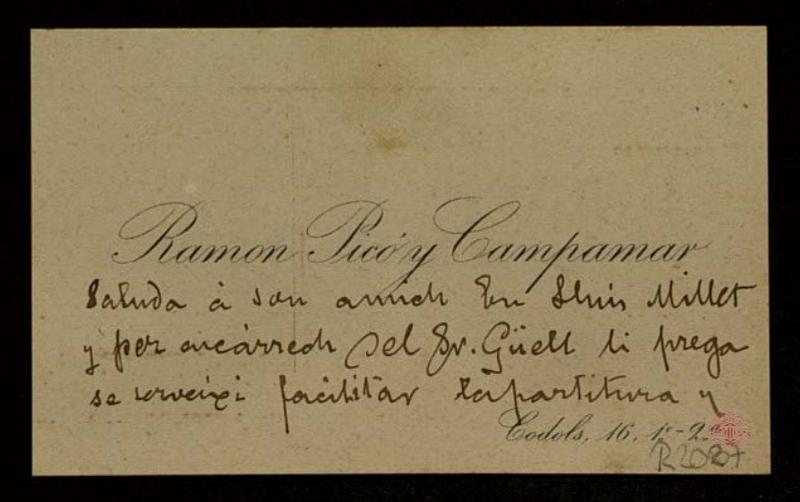 Ramon Picó y Campamar
Saluda à son amich En Lluis Millet
y per encárrech del Sr. Güell li prega
se serveixi facilitar la partitura y
Codols, 16, 1º-2ª
R2087